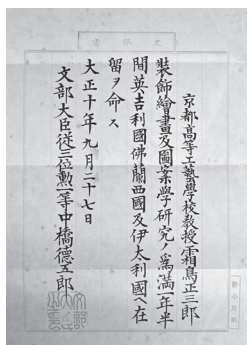 京都高等工藝學校教授霜鳥正三郎
裝飾繪畫及圖案學硏究ノ爲滿一年半
間英吉利國佛蘭西國及伊太利國ヘ在
留ヲ命ス
大正十年九月二十七日
文部大臣從三位勲一等中橋德五郎